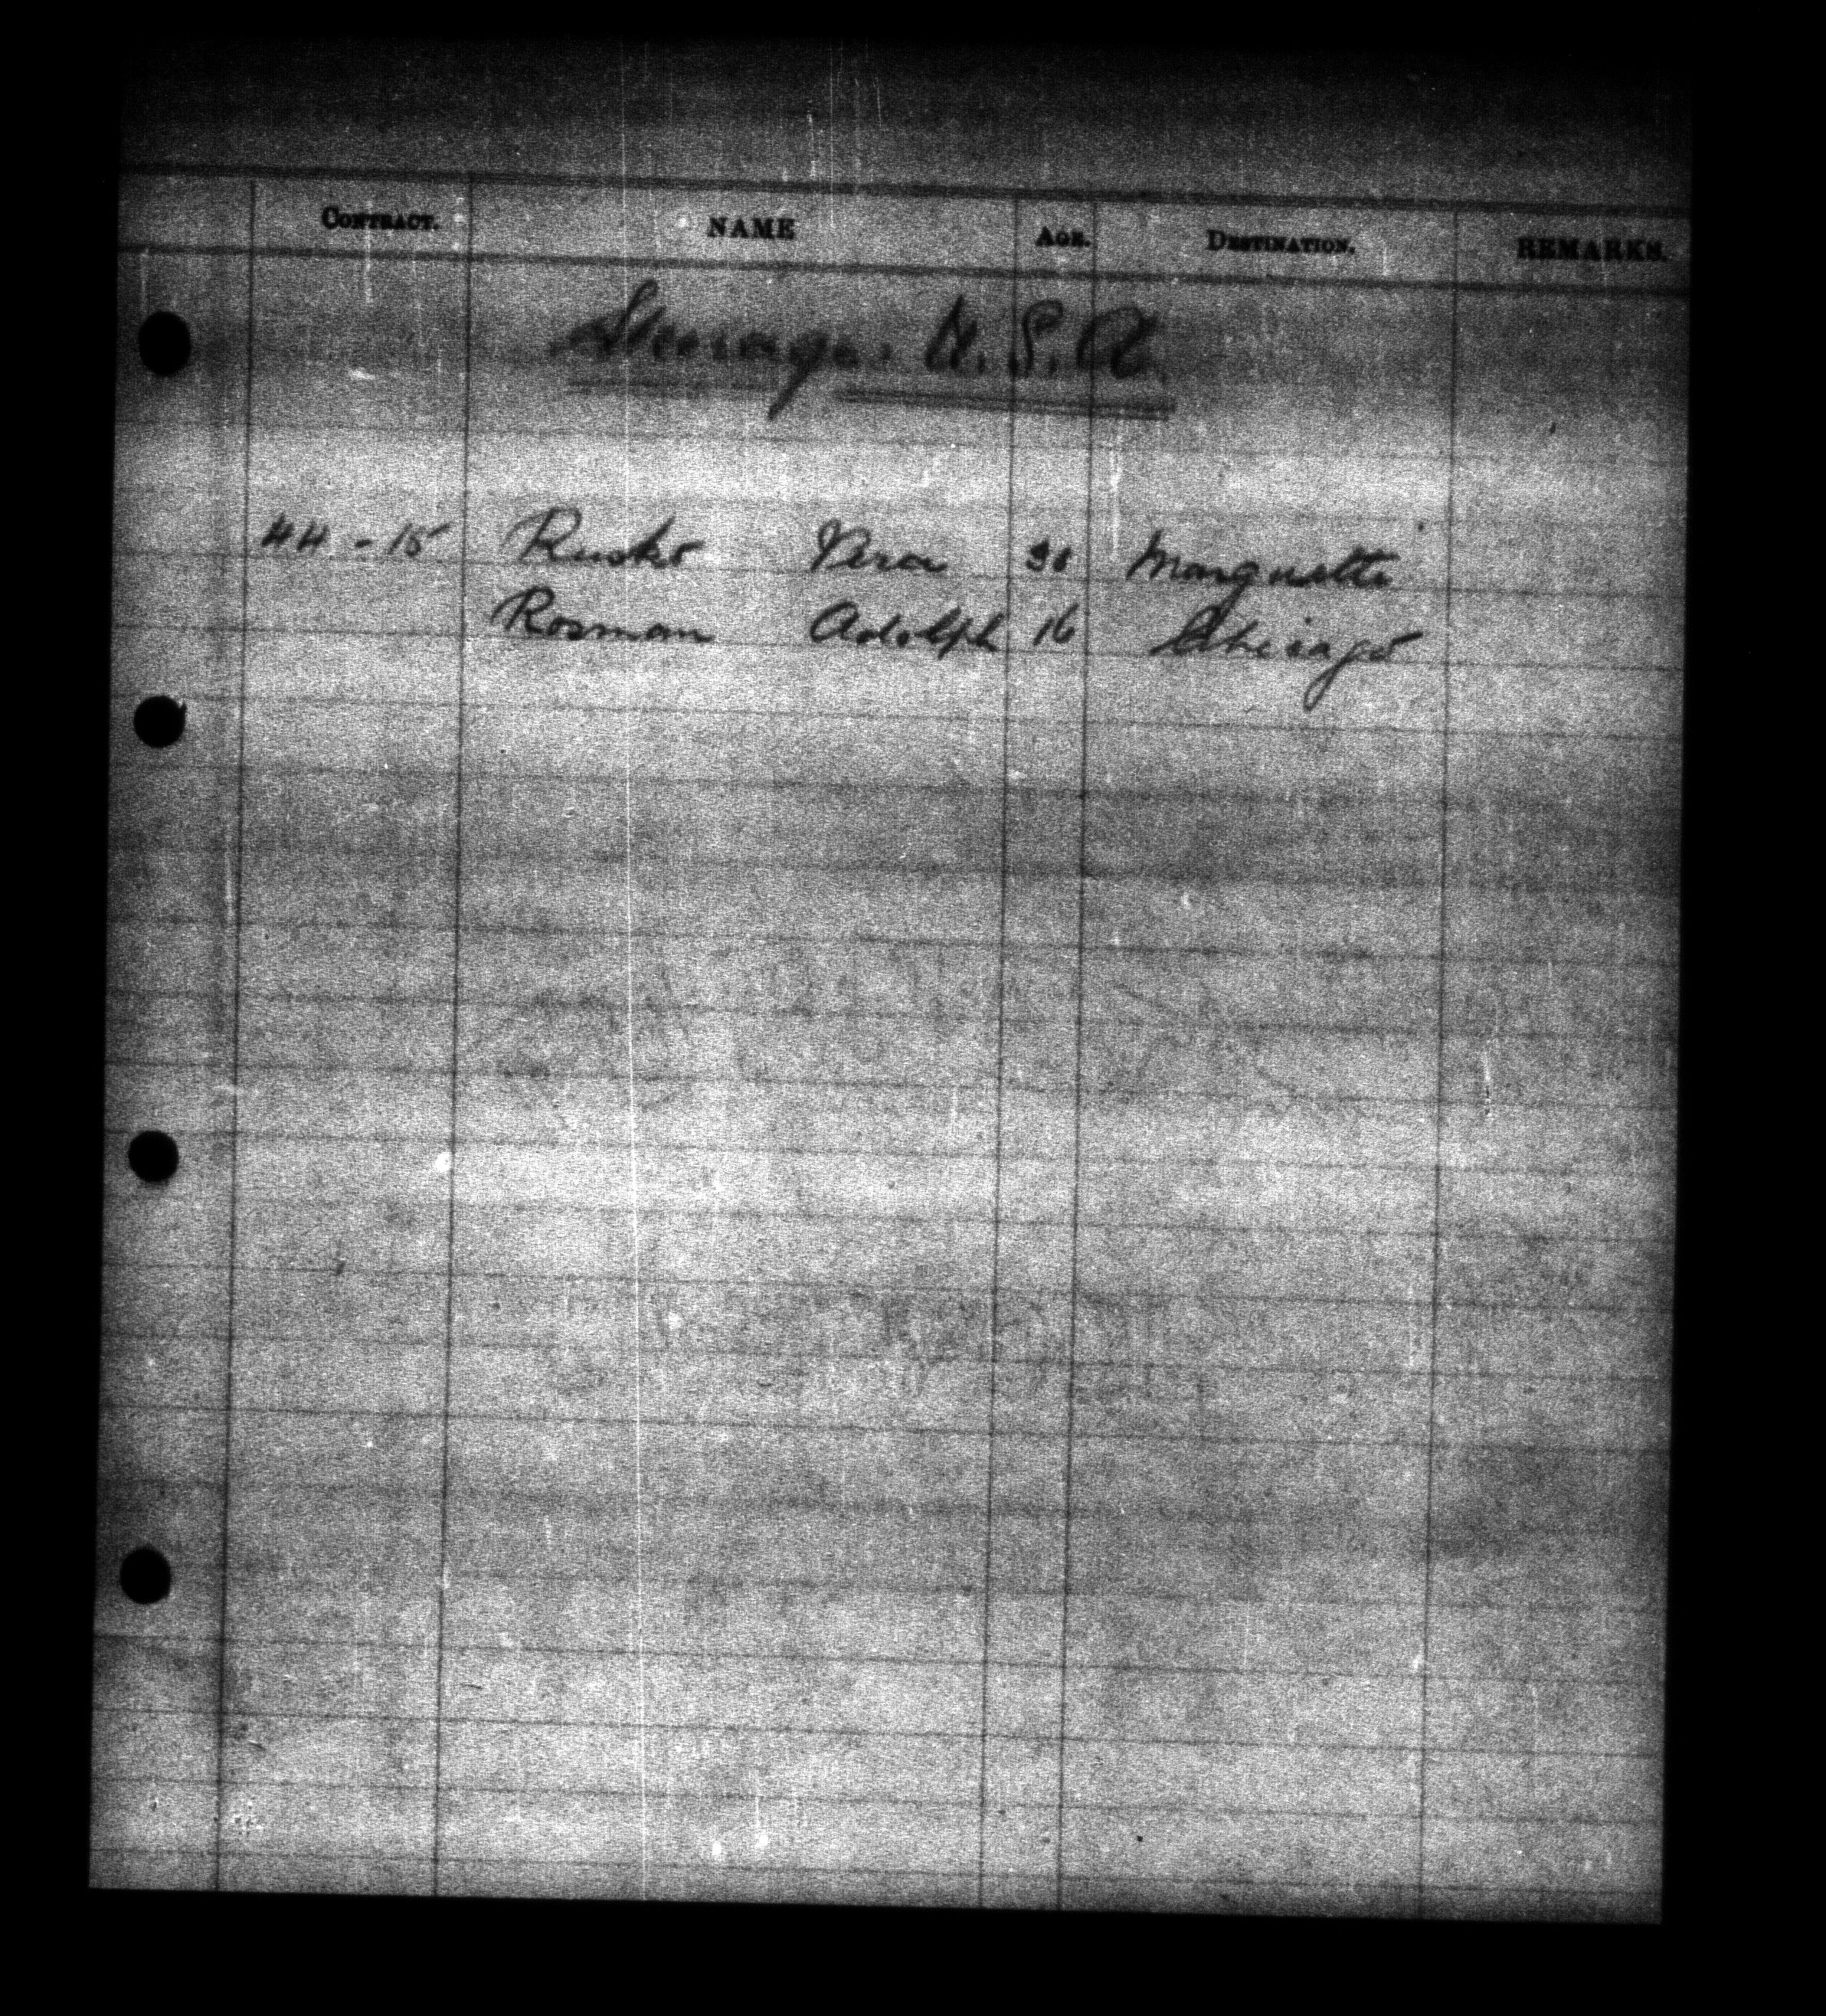 CONTRACT. NAME AGE. DESTINATION. REMARKS.
Steerage. U.S.A.
44-15 Rusko Vera Marquette
Rosman Adolph 16 Chicago